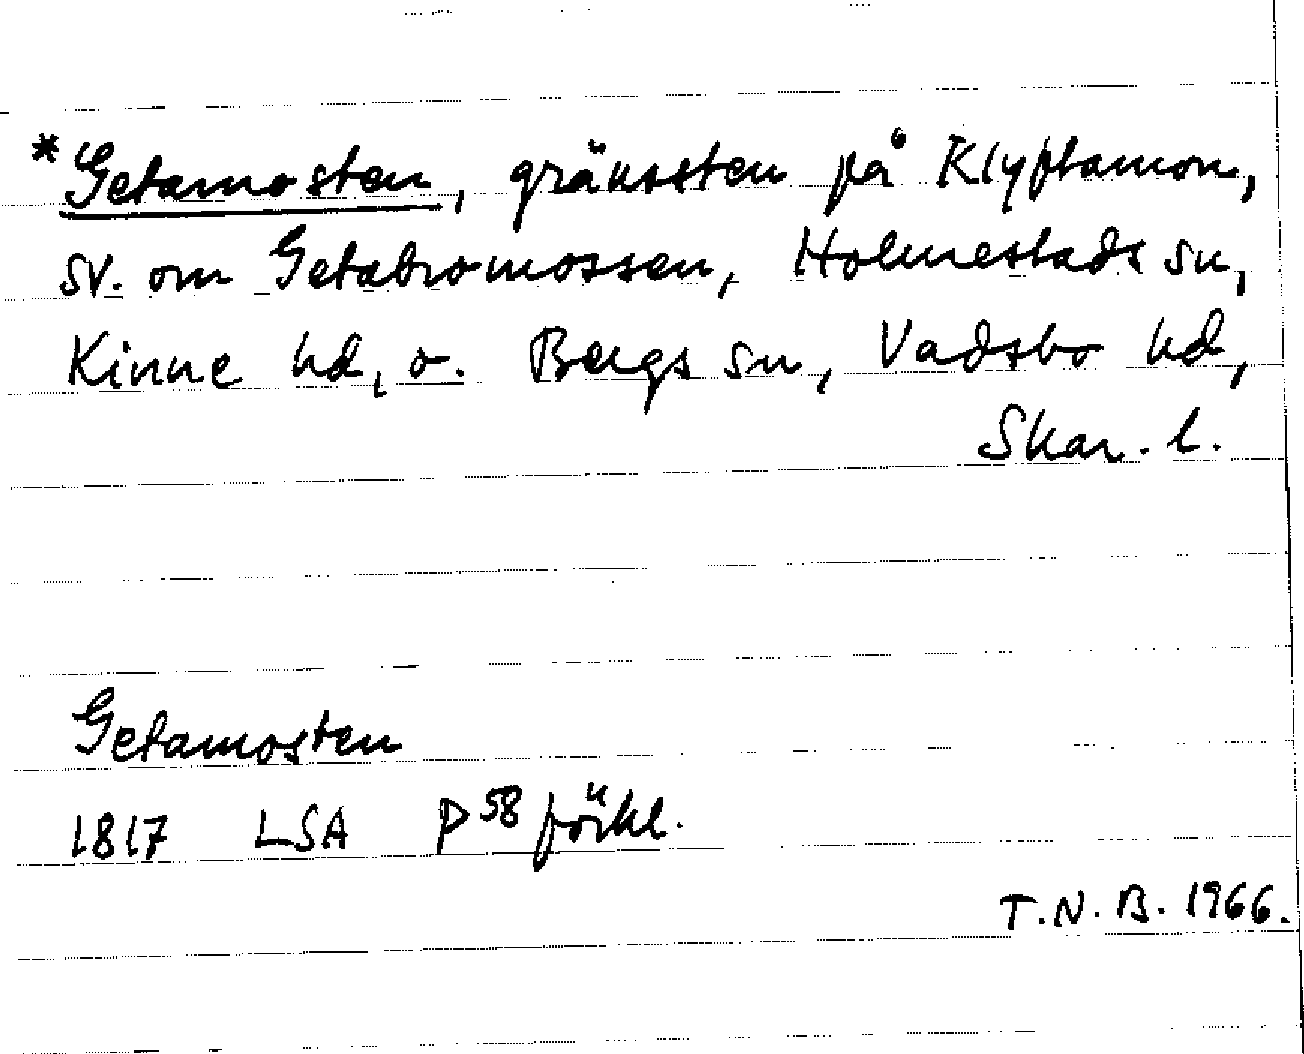 *Getamosten, gränssten på Klyftamon,
sv. om Getabromossen, Holmestads sn,
Kinne hd, o. Bergs sn, Vadsbo hd,
Skar. l.
Getamosten
1817 LSA P58 förkl.
T.N.B. 1966.